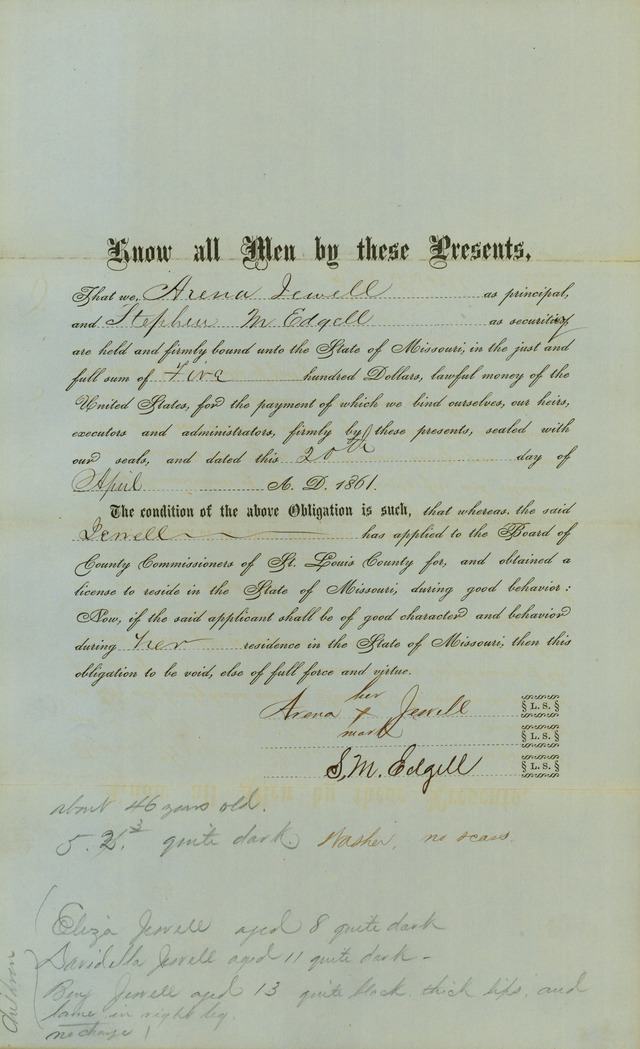 Know all Men by these Presents,
That we, Arena Jewell as principal,
and Stephen M Edgell as security,
are held and firmly bound unto the State of Missouri, in the just and
full sum of Five hundred Dollars, lawful money of the
United States, for the payment of which we bind ourselves, our heirs,
executors and administrators, firmly by these presents, sealed with
our seals, and dated this 20th day of
April A. D. 1861.
The condition of the above Obligation is such, that whereas the said
Jewell has applied to the Board of
County Commissioners of St. Louis County for, and obtained a
license to reside in the State of Missouri, during good behavior:
Now, if the said applicant shall be of good character and behavior
during her residence in the State of Missouri, then this
obligation to be void, else of full force and virtue.
her
Arena X Jewell § L. S. §
mark § L. S. §
S. M. Edgell § L. S. §
about 46 years old.
5. quite dark. Washer. no scars.
Eliza Jewell aged 8 quite dark
Davidella Jewell aged 11 quite dark -
Benj Jewell aged 13 quite black. thick lips, and
lame in right leg.
no charge!
Children